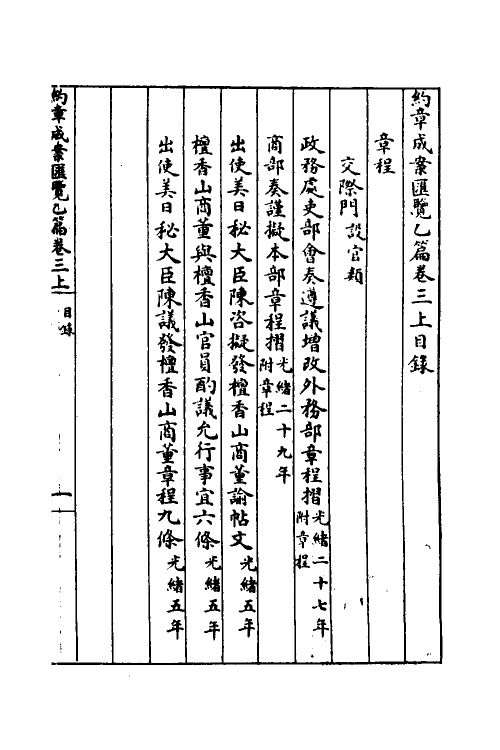 約章成案匯覽乙篇卷三上目錄
章程
交際門 設官類
政務處吏部會奏遵議增改外務部章程摺光緒二十七年附章程
商部奏謹擬本部章程摺光緒二十九年附章程
出使美日秘大臣陳咨擬發檀香山商董諭帖文光緒五年
檀香山商董與檀香山官員酌議允行事宜六條光緒五年
出使美日秘大臣陳議發檀香山商董章程九條光緒五年
約章成案匯覽乙篇卷三上 目錄 一